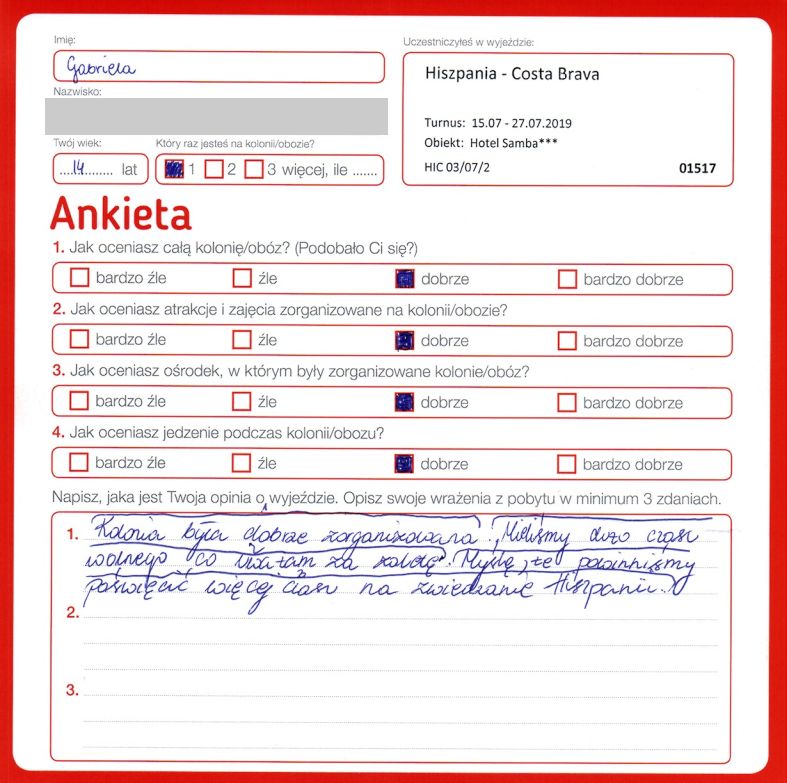 Imię:
Gabriela
Nazwisko:
Twój wiek:
14 lat
Który raz jesteś na kolonii/obozie?
1 2 3 więcej, ile .......
Uczestniczyłeś w wyjeździe:
Hiszpania - Costa Brava
Turnus: 15.07 - 27.07.2019
Obiekt: Hotel Samba***
HIC 03/07/2 01517
Ankieta
1. Jak oceniasz całą kolonię/obóz? (Podobało Ci się?)
bardzo źle źle dobrze bardzo dobrze
2. Jak oceniasz atrakcje i zajęcia zorganizowane na kolonii/obozie?
bardzo źle źle dobrze bardzo dobrze
3. Jak oceniasz ośrodek, w którym były zorganizowane kolonie/obóz?
bardzo źle źle dobrze bardzo dobrze
4. Jak oceniasz jedzenie podczas kolonii/obozu?
bardzo źle źle dobrze bardzo dobrze
Napisz, jaka jest Twoja opinia o wyjeździe. Opisz swoje wrażenia z pobytu w minimum 3 zdaniach.
1. Kolonia była dobrze zorganizowana. Mieliśmy dużo czasu
wolnego co uważam za zaletę. Myślę, że powinniśmy
poświęcić więcej czasu na zwiedzanie Hiszpanii.
2.
3.